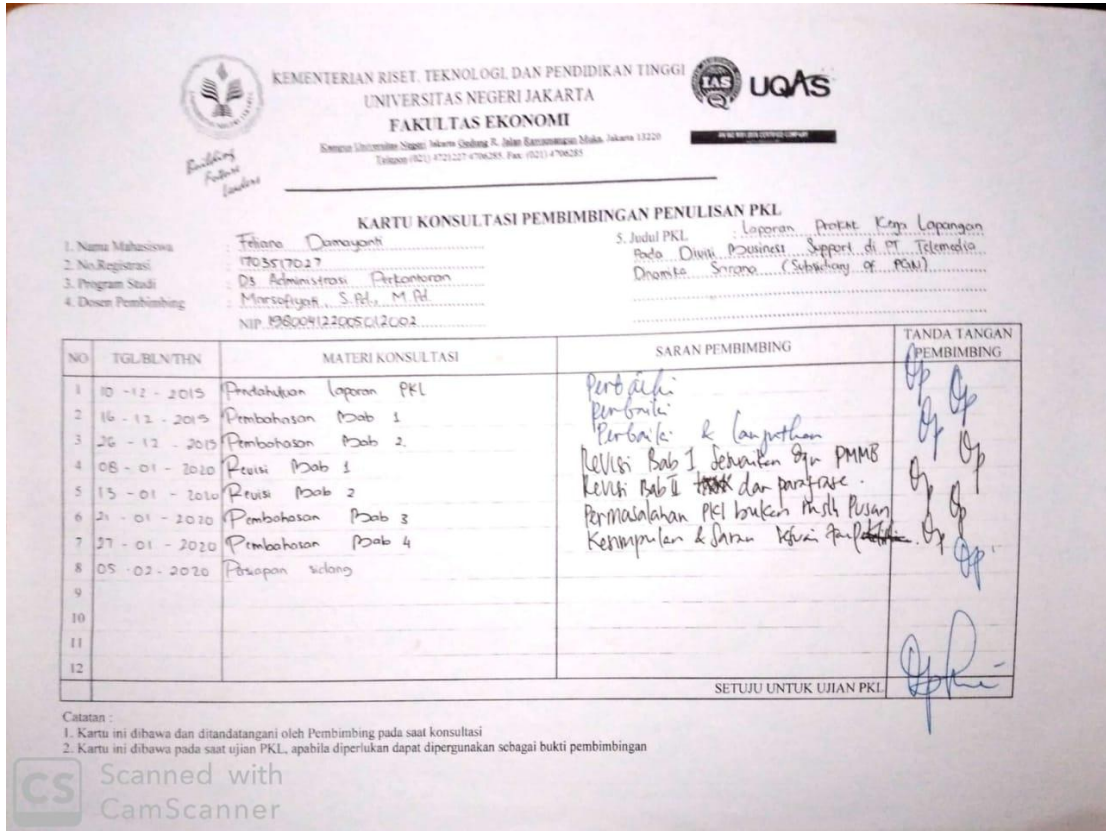 KEMENTERIAN RISET, TEKNOLOGI, DAN PENDIDIKAN TINGGI
UNIVERSITAS NEGERI JAKARTA
FAKULTAS EKONOMI
Kampus Universitas Negeri Jakarta Gedung R, Jalan Rawamangun Muka, Jakarta 13220
Telepon (021) 4721227/4706285, Fax: (021) 4706285
Building
Future
Leaders
IAS UQAS
KARTU KONSULTASI PEMBIMBINGAN PENULISAN PKL
1. Nama Mahasiswa : Feliana Damayanti
2. No.Registrasi : 1703517027
3. Program Studi : D3 Administrasi Perkantoran
4. Dosen Pembimbing : Marsofiyati, S.Pd., M.Pd
NIP.
5. Judul PKL : Laporan Praktek Kerja Lapangan
Pada Divisi Business Support di PT. Telemedia
Dnamika Sarana (Subsidiary of PGN)
NO TGL/BLN/THN MATERI KONSULTASI SARAN PEMBIMBING TANDA TANGAN PEMBIMBING
1 10 - 12 - 2019 Pendahuluan laporan PKL Perbaiki
2 16 - 12 - 2019 Pembahasan Bab 1 Perbaiki
3 26 - 12 - 2019 Pembahasan Bab 2. Perbaiki & lanjutkan
4 08 - 01 - 2020 Revisi Bab 1 Revisi Bab I Sesuaikan dgn PMMB
5 13 - 01 - 2020 Revisi Bab 2 Revisi Bab II dan parafrase.
6 21 - 01 - 2020 Pembahasan Bab 3 Permasalahan PKL bukan mslh
7 27 - 01 - 2020 Pembahasan Bab 4 Kesimpulan & Saran sesuai
8 05 - 02 - 2020 Persiapan sidang
9
10
11
12
SETUJU UNTUK UJIAN PKL
Catatan :
1. Kartu ini dibawa dan ditandatangani oleh Pembimbing pada saat konsultasi
2. Kartu ini dibawa pada saat ujian PKL, apabila diperlukan dapat dipergunakan sebagai bukti pembimbingan
CS Scanned with
CamScanner